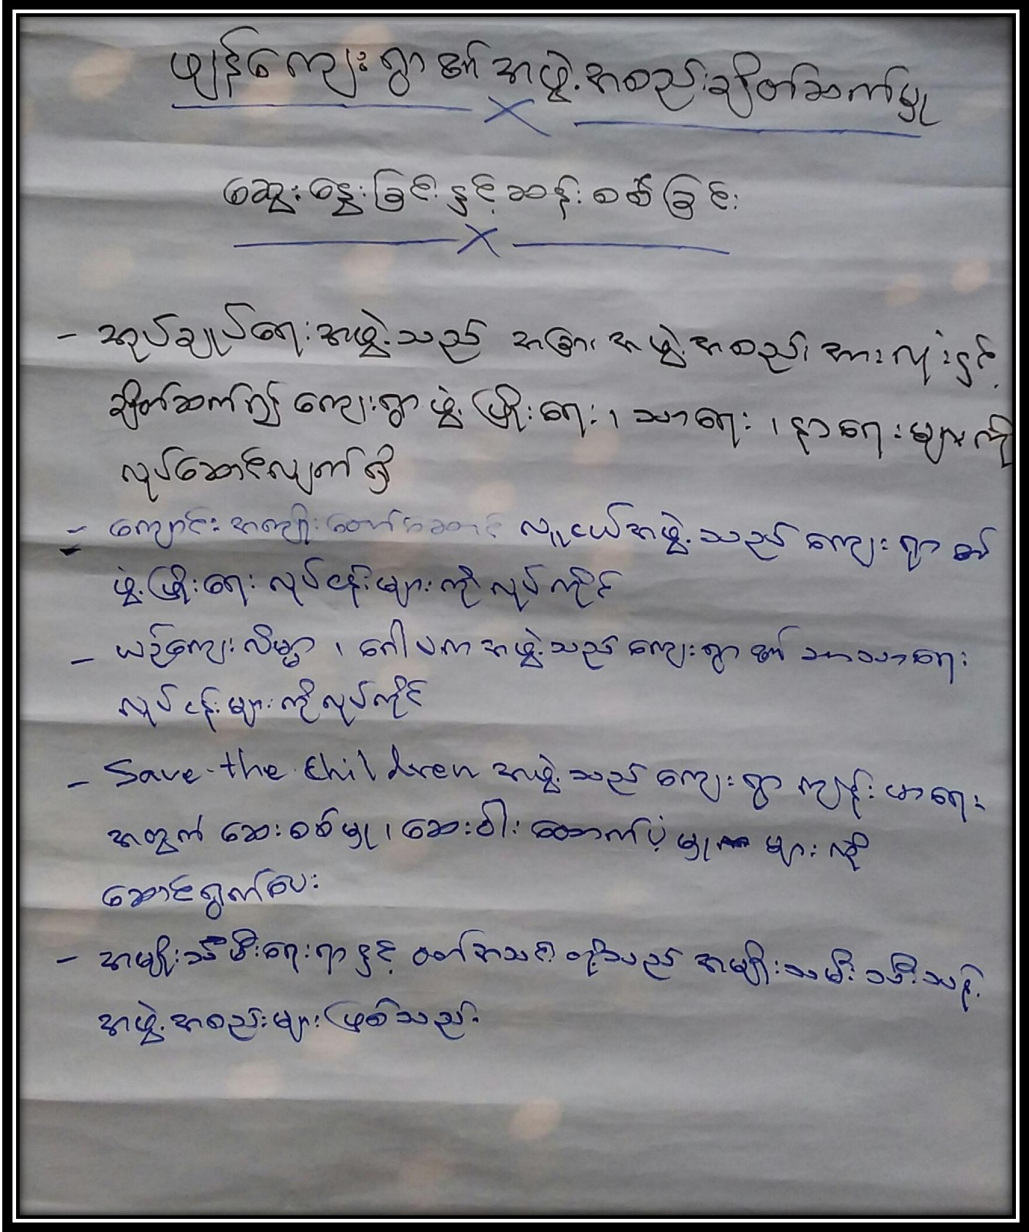 ဖျန်ကျေးရွာ၏ အဖွဲ့အစည်းချိတ်ဆက်မှု
ဆွေးနွေးခြင်းနှင့်ဆန်းစစ်ခြင်း
- အုပ်ချုပ်ရေးအဖွဲ့သည် အခြားအဖွဲ့အစည်းအားလုံးနှင့်
ချိတ်ဆက်၍ ကျေးရွာဖွံ့ဖြိုးရေး၊ သာရေး၊ နာရေးများကို
လုပ်ဆောင်လျက်ရှိ
- ကျောင်းအကျိုးတော်ဆောင် လူငယ်အဖွဲ့သည် ကျေးရွာ၏
ဖွံ့ဖြိုးရေးလုပ်ငန်းများကိုလုပ်ကိုင်
- ယဉ်ကျေးလိမ္မာ၊ ဂေါပကအဖွဲ့သည် ကျေးရွာ၏ ဘာသာရေး
လုပ်ငန်းများကိုလုပ်ကိုင်
- Save the Children အဖွဲ့သည် ကျေးရွာကျန်းမာရေး
အတွက် ဆေးစစ်မှု၊ ဆေးဝါးထောက်ပံ့မှုများကို
ဆောင်ရွက်ပေး
- အမျိုးသမီးရေးရာနှင့် ဝတ်အသင်းတို့သည် အမျိုးသမီးသီးသန့်
အဖွဲ့အစည်းများဖြစ်သည်။